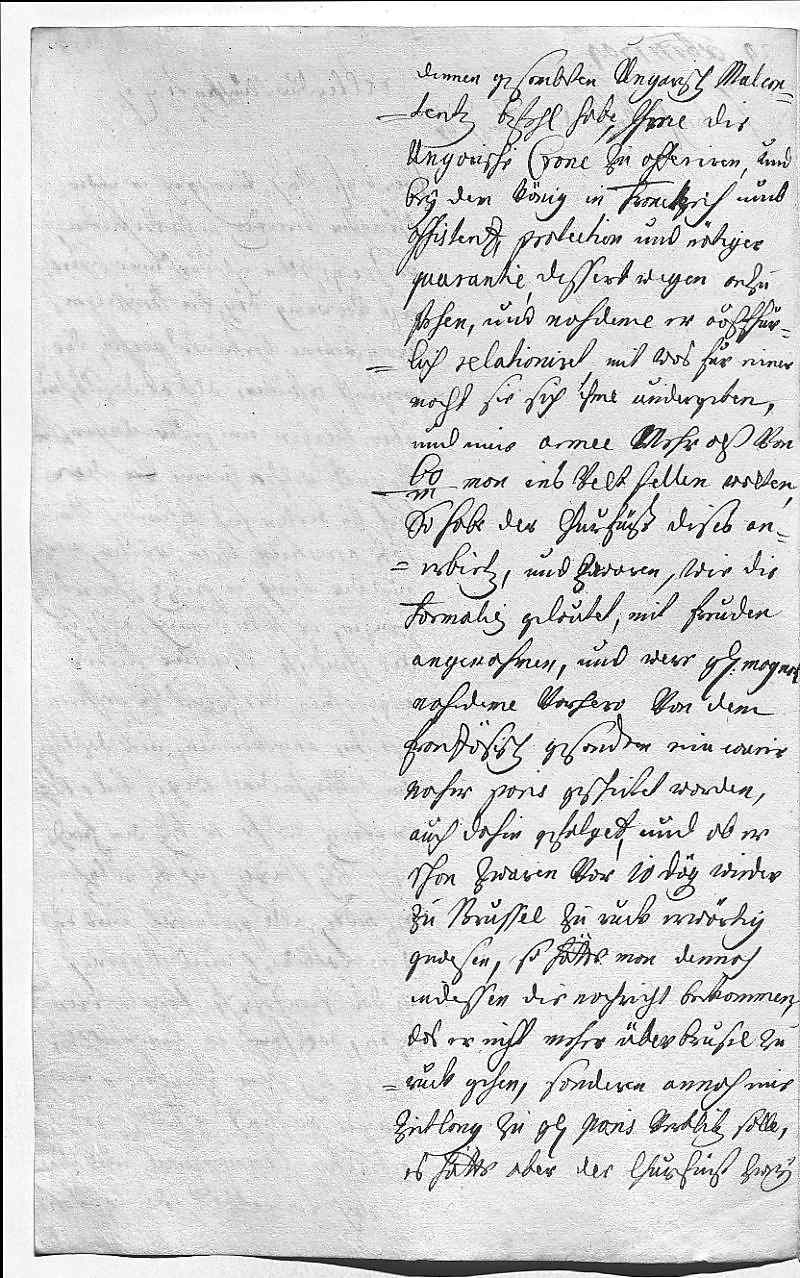 denen gesambten Ungarisch Malcon-
tentz befehl habe, Ihme die
Ungarische Crone zu offeriren, und
bey dem König in Franckreich umb
assistentz, protection und nötiger
guarantie dessentwegen anzu
stehen, und nachdeme er ausführ-
lich relationiret, mit was für einer
macht sie sich ihme undergeben,
und eine armee Mehr als Von
60
m man ins Velt stellen wolten,
So habe der Churfürst dises an-
erbietz, und zwaren, wie die
formalia gelautet, mit freuden
angenohmen, und were
nachdeme Vorhero Von dem
französisch gesanden ein courir
nacher paris geschickt worden,
auch dahin gefolget, und ob er
schon zwaren Vor 10 däg wieder
zu Brussel zu ruck erwärtig
gewesen, so hätte man dennoch
indessen die nachricht bekommen,
das er nicht mehr über brusel zu
ruck gehen, sonderen annoch eine
Zeitlang zu Paris solle,
es hätte aber der Churfürst